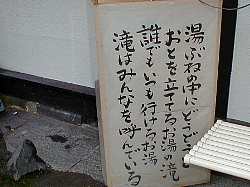 湯ぶねの中にどうどうと
おとを立てるお湯の滝
誰でもいつも行けるお湯
滝はみんなを呼んでいる